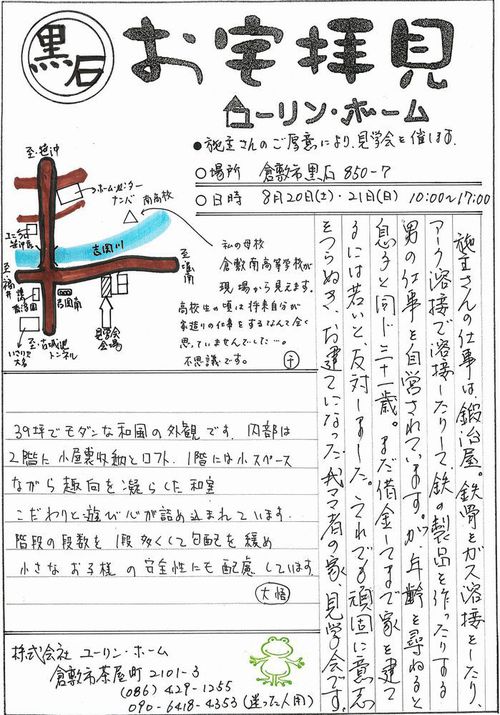 黒石
お宅拝見
ユーリン・ホーム
●施主さんのご厚意により、見学会を催します。
○場所 倉敷市黒石 850-7
○日時 8月20日(土)・21日(日) 10:00〜17:00
至・笹沖
ホームセンター
ナンバ
南高校
吉岡川
至・福井
吉岡南
見学会
会場
至・古城池
トンネル
私の母校
倉敷南高等学校が
現場から見えます。
高校生の頃は将来自分が
家造りの仕事をするなんて全く
思っていませんでした…。
不思議です。
千
施主さんの仕事は、鍛冶屋。鉄骨をガス溶接をしたり、
アーク溶接で溶接したりして鉄の製品を作ったりする
男の仕事を自営されています。が、年齢を尋ねると
息子と同じ三十一歳。まだ借金してまで家を建て
るには若いと反対しました。それでも頑固に意志
をつらぬき、お建てになった我ママ者の家、見学会です。
39坪でモダンな和風の外観です。内部は
2階に小屋裏収納とロフト、1階には小スペース
ながら趣向を凝らした和室
こだわりと遊び心が詰め込まれています。
階段の段数を1段多くして勾配を緩め
小さなお子様の安全性にも配慮しています。
大悟
株式会社 ユーリン・ホーム
倉敷市茶屋町2101-3
(086) 429-1255
090-6418-4353 (迷った人用)